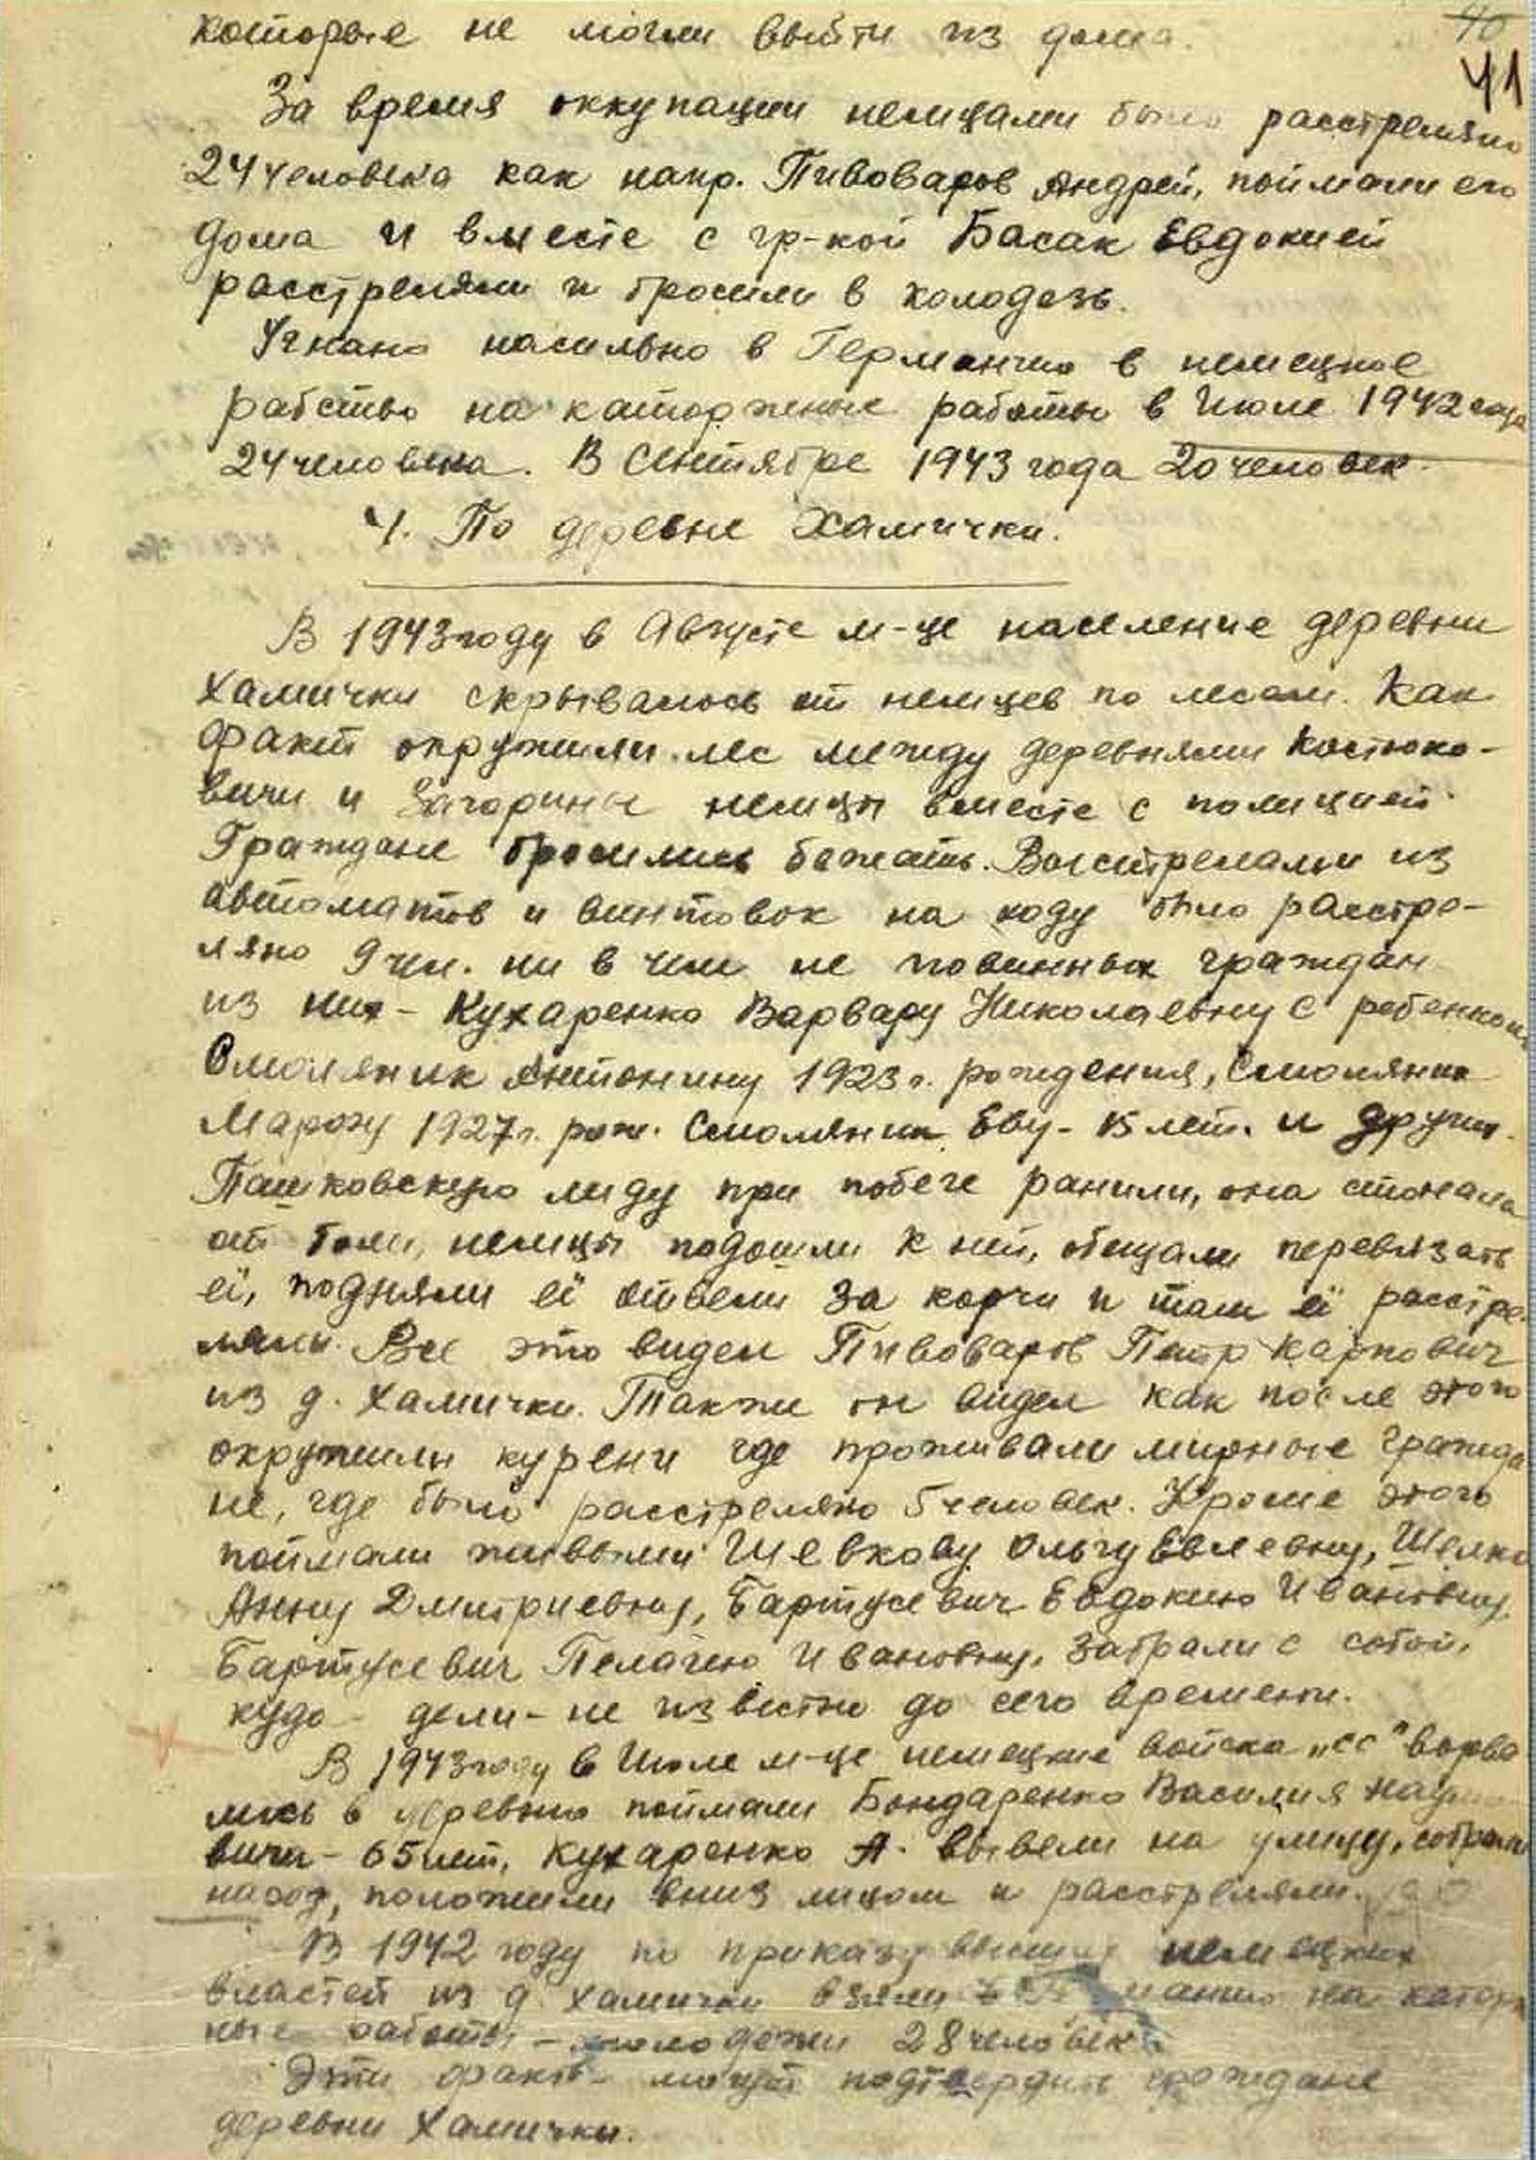 40
41
которые не могли выйти из дома.
За время оккупации немцами было расстреляно
24 человека как напр. Пивоваров Андрей, поймали его
дома и вместе с гр-кой Басак Евдокией
расстреляли и бросили в колодезь.
Угнано насильно в Германию в немецкое
рабство на каторжные работы в Июле 1942 года
24 человека. В Сентябре 1943 года 20 человек.
4. По деревне Хамички.
В 1943 году в Августе м-це население деревни
Хамички скрывалось от немцев по лесам. Как
факт окружили лес между деревнями Костюко-
вичи и Загорины немцы вместе с полицией.
Граждане бросились бежать. Выстрелами из
автоматов и винтовок на ходу было расстре-
ляно 9 чел. ни в чем не повинных граждан
из них - Кухаренко Варвару Николаевну с ребенком
Смоляник Антонину 1923 г. рождения, Смоляник
Марфу 1927 г. рож. Смоляник Еву - 15 лет. и других.
Пашковскую Лиду при побеге ранили, она стонала
от боли, немцы подошли к ней, обещали перевязать
её, подняли её отвели за корчи и там её расстре-
ляли. Все это видел Пивоваров Петр Карпович
из д. Хамички. Также он видел как после этого
окружили курени где проживали мирные гражда
не, где было расстреляно 5 человек. Кроме этого
поймали живыми Шевкову Ольгу Евлеевну, Шелко
Анну Дмитриевну, Бартусевич Евдокию Ивановну,
Бартусевич Пелагею Ивановну, забрали с собой,
кудо - дели - не известно до сего времени.
В 1943 году в Июле м-це немецкие войска „СС" ворва
лись в деревню поймали Бондаренко Василия Наумо
вича - 65 лет, Кухаренко А. вывели на улицу, собрали
народ, положили вниз лицом и расстреляли.
В 1942 году по приказу высших немецких
властей из д. Хамички взяли в Германию на каторж
ные работы - молодежи 28 человек.
Эти факты могут подтвердить граждане
деревни Хамички.